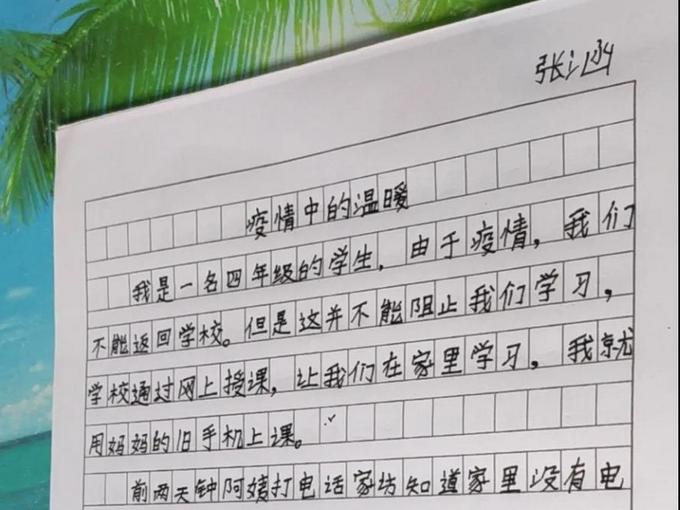 张涵
疫情中的温暖
我是一名四年级的学生，由于疫情，我们
不能返回学校。但是这并不能阻止我们学习，
学校通过网上授课，让我们在家里学习，我就
用妈妈的旧手机上课。
前两天钟阿姨打电话家访知道家里没有电